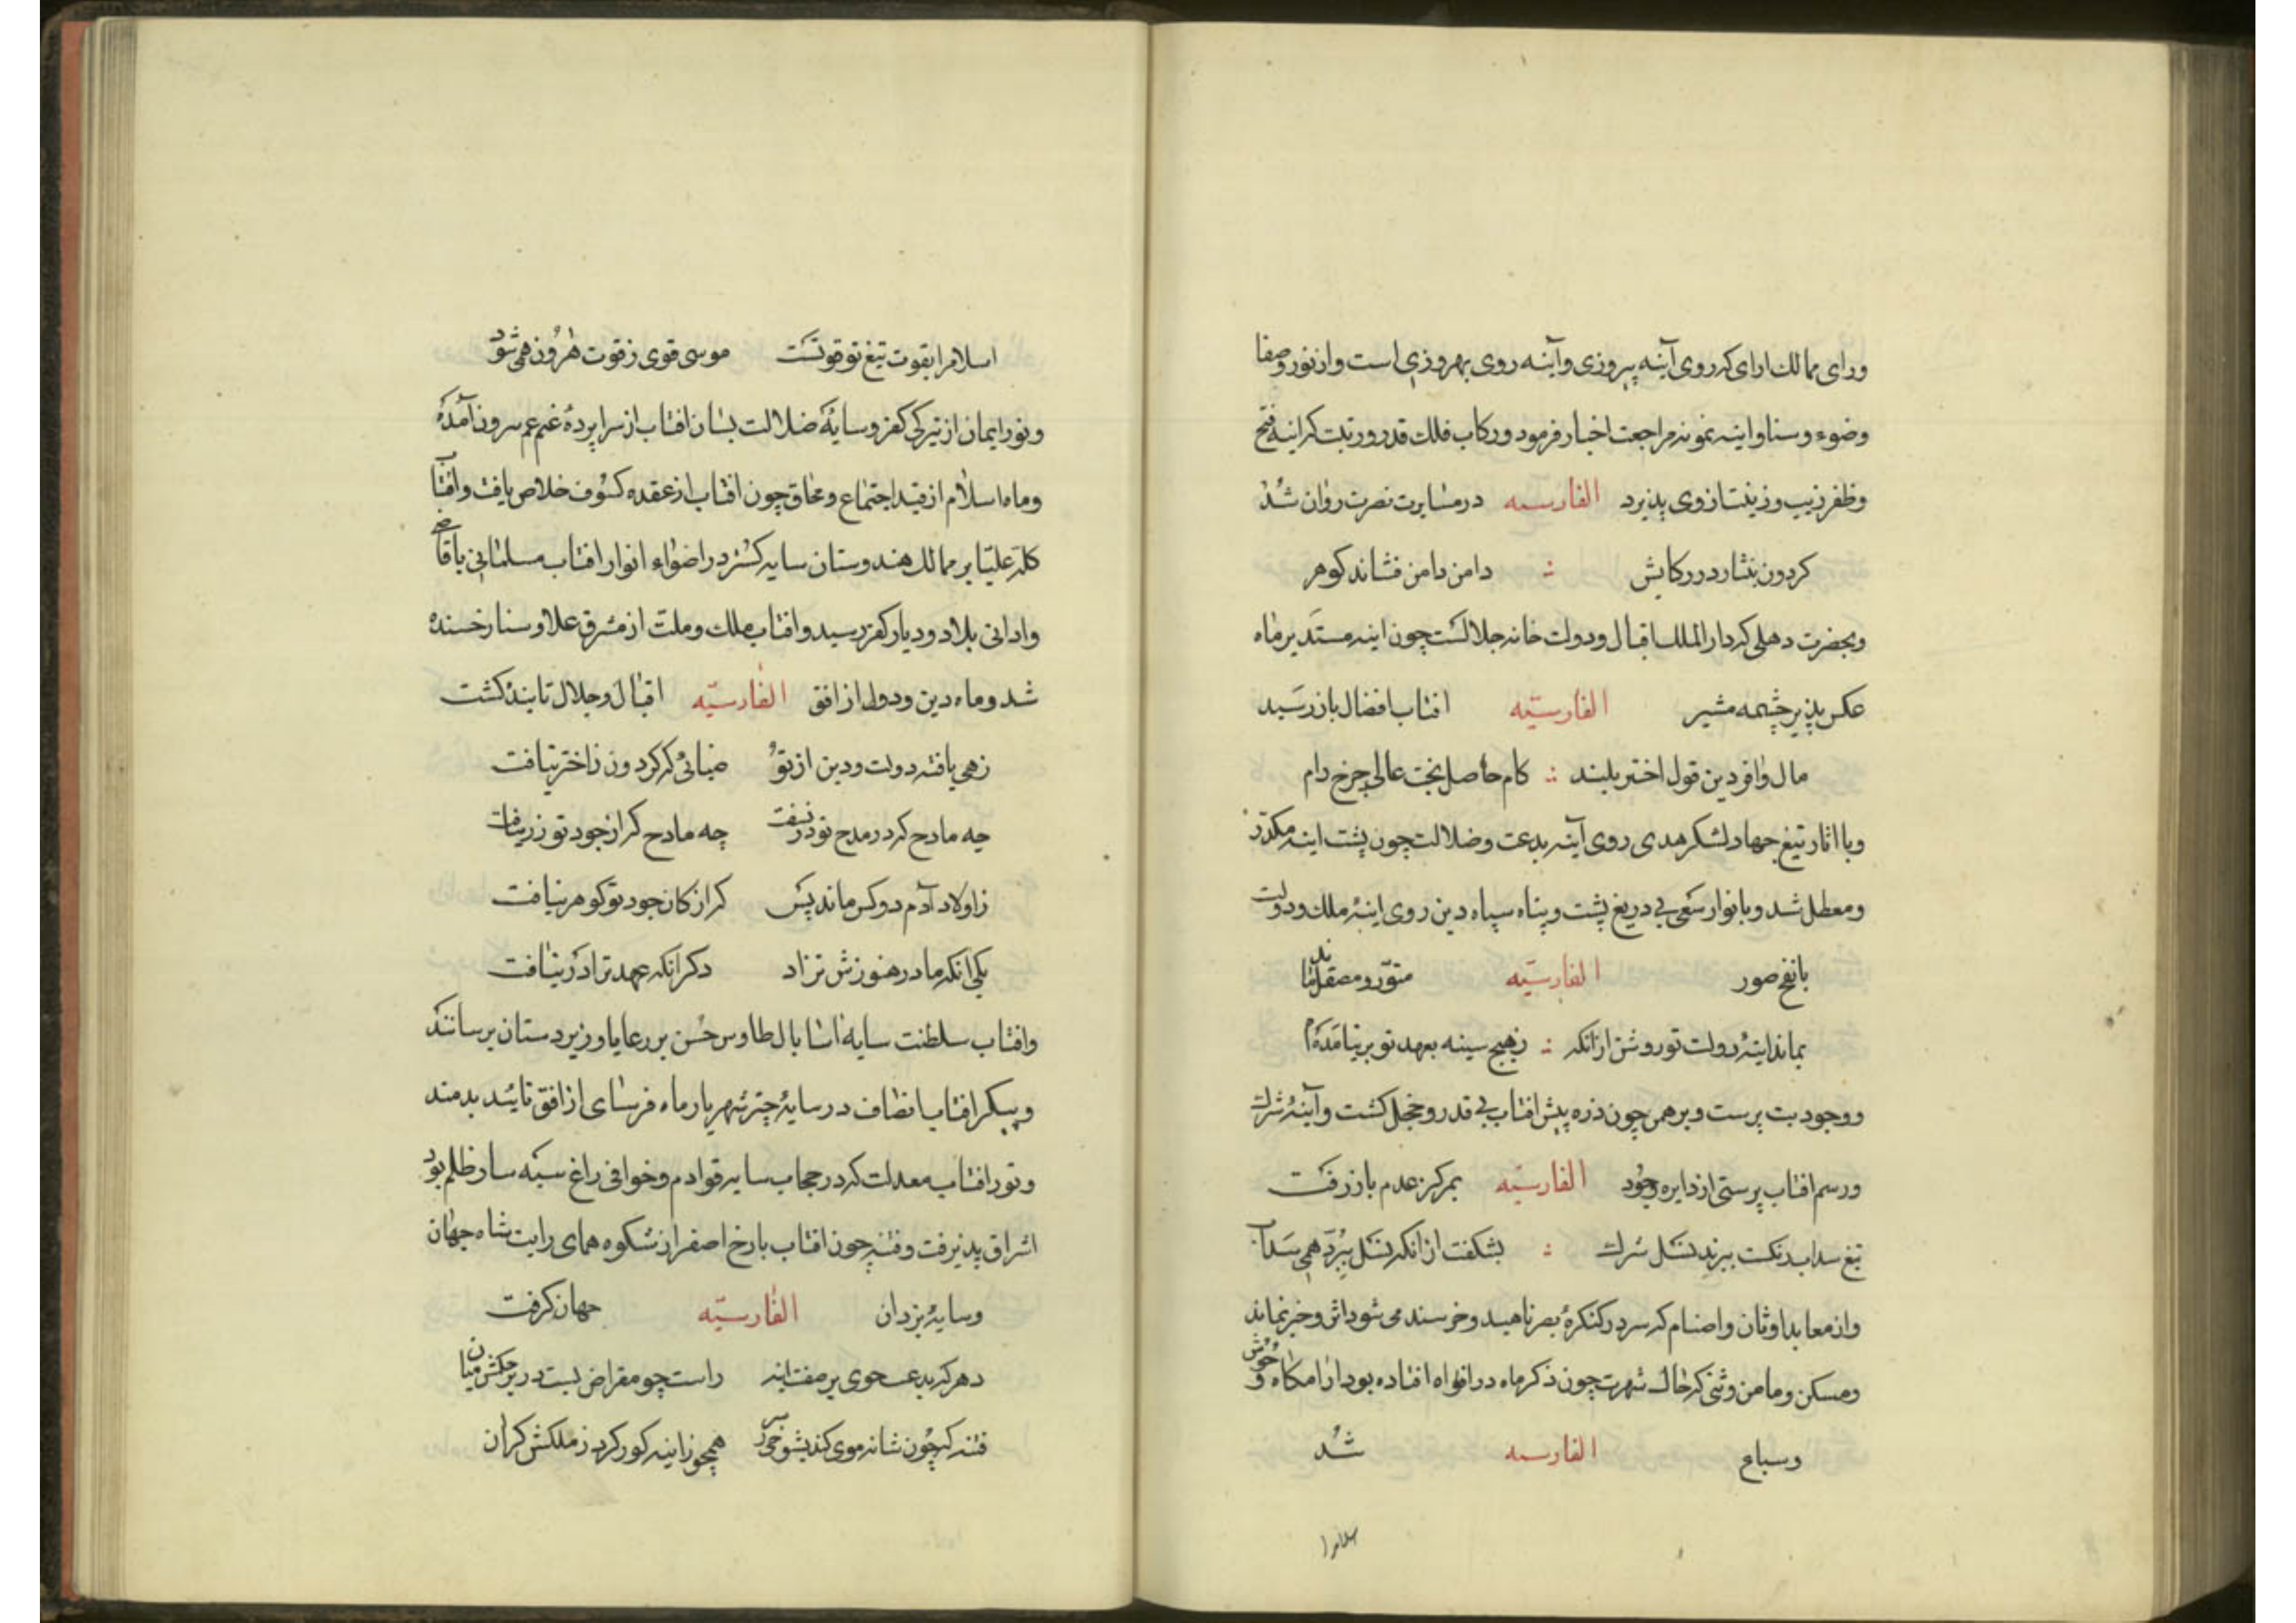 ورای ممالک ارای که روی آینه پیروزی و آینه روی بهروزی است و از نور و صفا
وضوء و سنا و اینه نمونه مراجعت اخبار فرمود و رکاب فلک قدر و رتبت که اینه فتح
وظفر زیب و زینت از وی پذیرد الفارسیه در مسایرت نصرت روان شد
کردون بنثار در رکابش دامن دامن فشاند کوهر
وبحضرت دهلی که دار الملک اقبال و دولت خانه جلالست چون اینه مستدیر ماه
عکس پذیر چشمه مشیر الفارسیّه افتاب افضال باز رسید
مال وافر دین قول اختر بلند کام حاصل بخت عالی چرخ رام
وبا اثار تیغ جهاد لشکر هدی روی آینه بدعت و ضلالت چون پشت اینه مکدّر
ومعطل شد و با نوار سعی بی دریغ پشت و پناه سپاه دین روی اینۀ ملک و دولت
با نفخ صور الفارسیّه منوّر و مصقل ماند
بماند اینۀ دولت تو روشن ازانکه ز هیچ سینه بعهد تو بر نیامد دم
ووجود بت پرست و برهمن چون ذره پیش افتاب بی قدر و خجل کشت و آینۀ شرک
ورسم افتاب پرستی از دایره وجود الفارسیّه بمرکز عدم باز رفت
تیغ سداب رنکت ببرید نسل شرک بشکفت ازانکه نسل ببرّد همی سداب
واز معابد اوثان و اصنام که سر در کنکرۀ بصر ناهید و خرسند می شود اثر و خبر نماند
ومسکن و مامن وثنی که خاک شهرت چون ذکر ماه در افواه افتاده بود ارامکاه وحوش
وسباع الفارسیه شد
اسلامرا
اسلامرا بقوت تیغ تو قوتست موسی قوی ز قوت هرون همی شود
ونور ایمان از تیرکی کفر و سایۀ ضلالت بسان افتاب از سراپردۀ غیم بیرون آمده
وماه اسلام از قید اجتماع و محاق چون افتاب از عقده کسوف خلاص یافت و افتاب
کلمه علیّا بر ممالک هندوستان سایه کسترد و اضواء انوار افتاب مسلمانی باقاصی
وادانی بلاد و دیار کفر رسید و افتاب ملک و ملت از مشرق علا و سنا رخسنده
شد و ماه دین و دولت از افق الفارسیّه اقبال و جلال تابنده کشت
زهی یافته دولت و دین از تو ضیائی که کردون ز اختر نیافت
چه مادح کرد در مدح تو در نسفت چه مادح که از جود تو زر نیافت
ز اولاد آدم دو کس ماند پس که از کان جود تو کوهر نیافت
یکی انکه مادر هنوزش نزاد دکر انکه عهد ترا در نیافت
وافتاب سلطنت سایه اسا بال طاوس حسن بر رعایا و زیر دستان بر سانند
وپیکر افتاب انصاف در سایۀ چتر شهریار ماه فرسای از افق تائید بدمند
ونور افتاب معدلت که در حجاب سایه قوادم و خوافی زاغ سیه سار ظلم بود
اشراق پذیرفت و فتنه چون افتاب با رخ اصفر از شکوه همای رایت شاه جهان
وسایۀ یزدان الفارسیّه جهان کرفت
دهر که بد عـــــــحوی بر صفت اینه راست چو مقراض بست در بر حکمش میان
فتنه که چون شانه موی کند بشوخی ز سر همچو ز اینه کور کرد ز ملکش کران